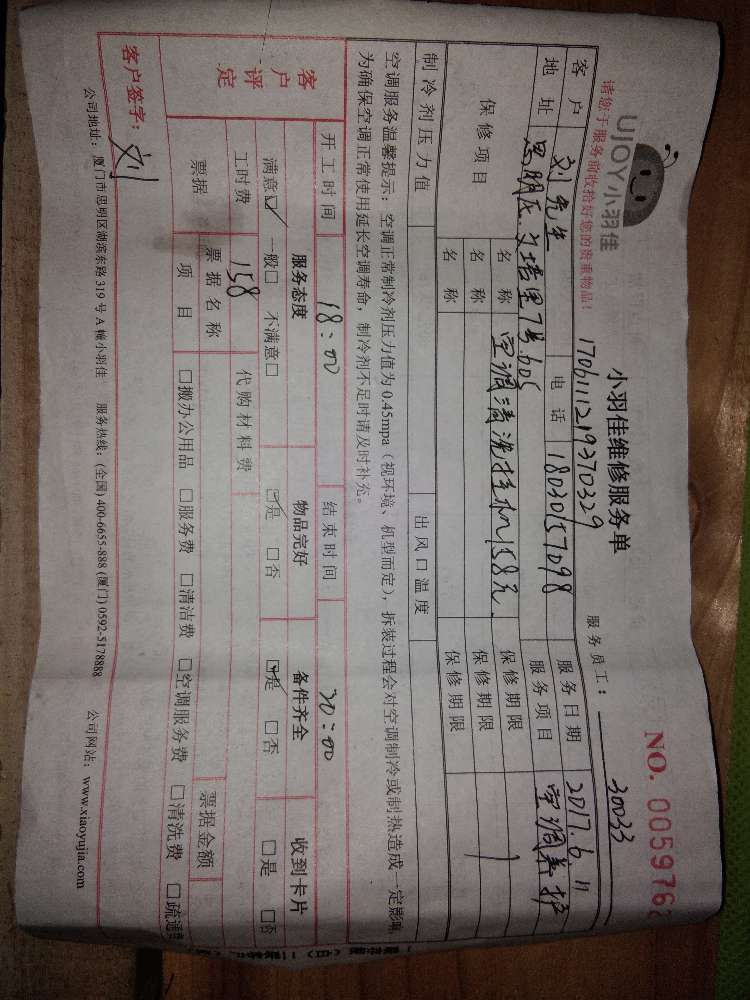 UJOY小羽佳
请您于服务前收拾好您的贵重物品！
小羽佳维修服务单
NO. 0059762
1706111219370329
服务员工： 30033
客户 刘先生 电话 18030157098 服务日期 2017.6.11
地址 思明区 7号.605 服务项目 空调养护
保修项目 名称 空调清洗挂机158元 保修期限
名称 保修期限
名称 保修期限
制冷剂压力值 出风口温度
空调服务温馨提示：空调正常制冷剂压力值为0.45mpa（视环境、机型而定），拆装过程会对空调制冷或制热造成一定影响
为确保空调正常使用延长空调寿命，制冷剂不足时请及时补充。
开工时间 18:00 结束时间 20:00
客户评定 服务态度 物品完好 备件齐全 收到卡片
满意☑ 一般□ 不满意□ ☑是 □否 ☑是 □否 □是 □否
工时费 158 代购材料费
票据 票据名称 票据金额
项目 □搬办公用品 □服务费 □清洁费 □空调服务费 □清洗费 □疏通费
客户签字： 刘
公司地址：厦门市思明区湖滨东路319号A幢小羽佳 服务热线：(全国) 400-6655-888 (厦门) 0592-5178888 公司网站：www.xiaoyujia.com